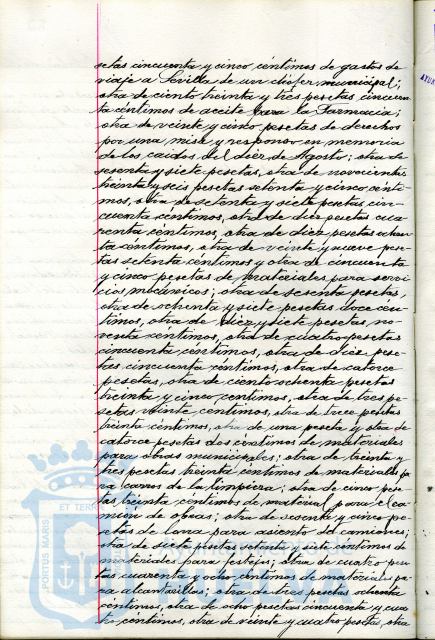 setas cincuenta y cinco céntimos de gastos de
viaje a Sevilla de un chófer municipal;
otra de ciento treinta y tres pesetas cincuen
ta céntimos de aceite para la Farmacia;
otra de veinte y cinco pesetas de derechos
por una misa y responso en memoria
de los caidos del diez de Agosto; otra de
sesenta y siete pesetas, otra de novecientas
treinta y seis pesetas setenta y cinco cénti-
mos, otra de setenta y siete pesetas cin-
cuenta céntimos, otra de diez pesetas cua
renta céntimos, otra de diez pesetas ochen
ta céntimos, otra de veinte y nueve pese-
tas setenta céntimos y otra de cincuenta
y cinco pesetas de materiales para servi
cios mecánicos; otra de sesenta pesetas,
otra de ochenta y siete pesetas doce cén-
timos, otra de diez y siete pesetas no-
venta céntimos, otra de cuatro pesetas
cincuenta céntimos, otra de diez pese-
tas cincuenta céntimos, otra de catorce
pesetas, otra de ciento ochenta pesetas
treinta y cinco céntimos, otra de tres pe-
setas veinte céntimos, otra de trece pesetas
treinta céntimos, otra de una peseta y otra de
catorce pesetas dos céntimos de materiales
para obras municipales; otra de treinta y
tres pesetas treinta céntimos de materiales pa
ra carros de la limpieza; otra de cinco pese
tas treinta céntimos de material para el ca
mión de obras; otra de sesenta y cinco pe-
setas de lana para asiento del camiones;
otra de siete pesetas setenta y céntimos de
materiales para festejos; otra de cuatro pese
tas cuarenta y ocho céntimos de materiales pa-
ra alcantarillas; otra de tres pesetas ochenta
céntimos, otra de ocho pesetas cincuenta y cua
tro céntimos, otra de veinte y cuatro pesetas, otra
PORTUS MARIS
ET TERRA